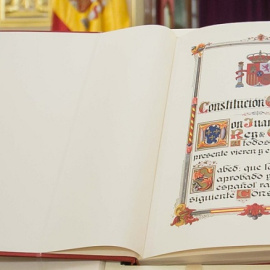 Constitucion
on Juan
Rey de
todos
presente vieren y e
abed: que la
aprobado y
español ra
siguiente Cons